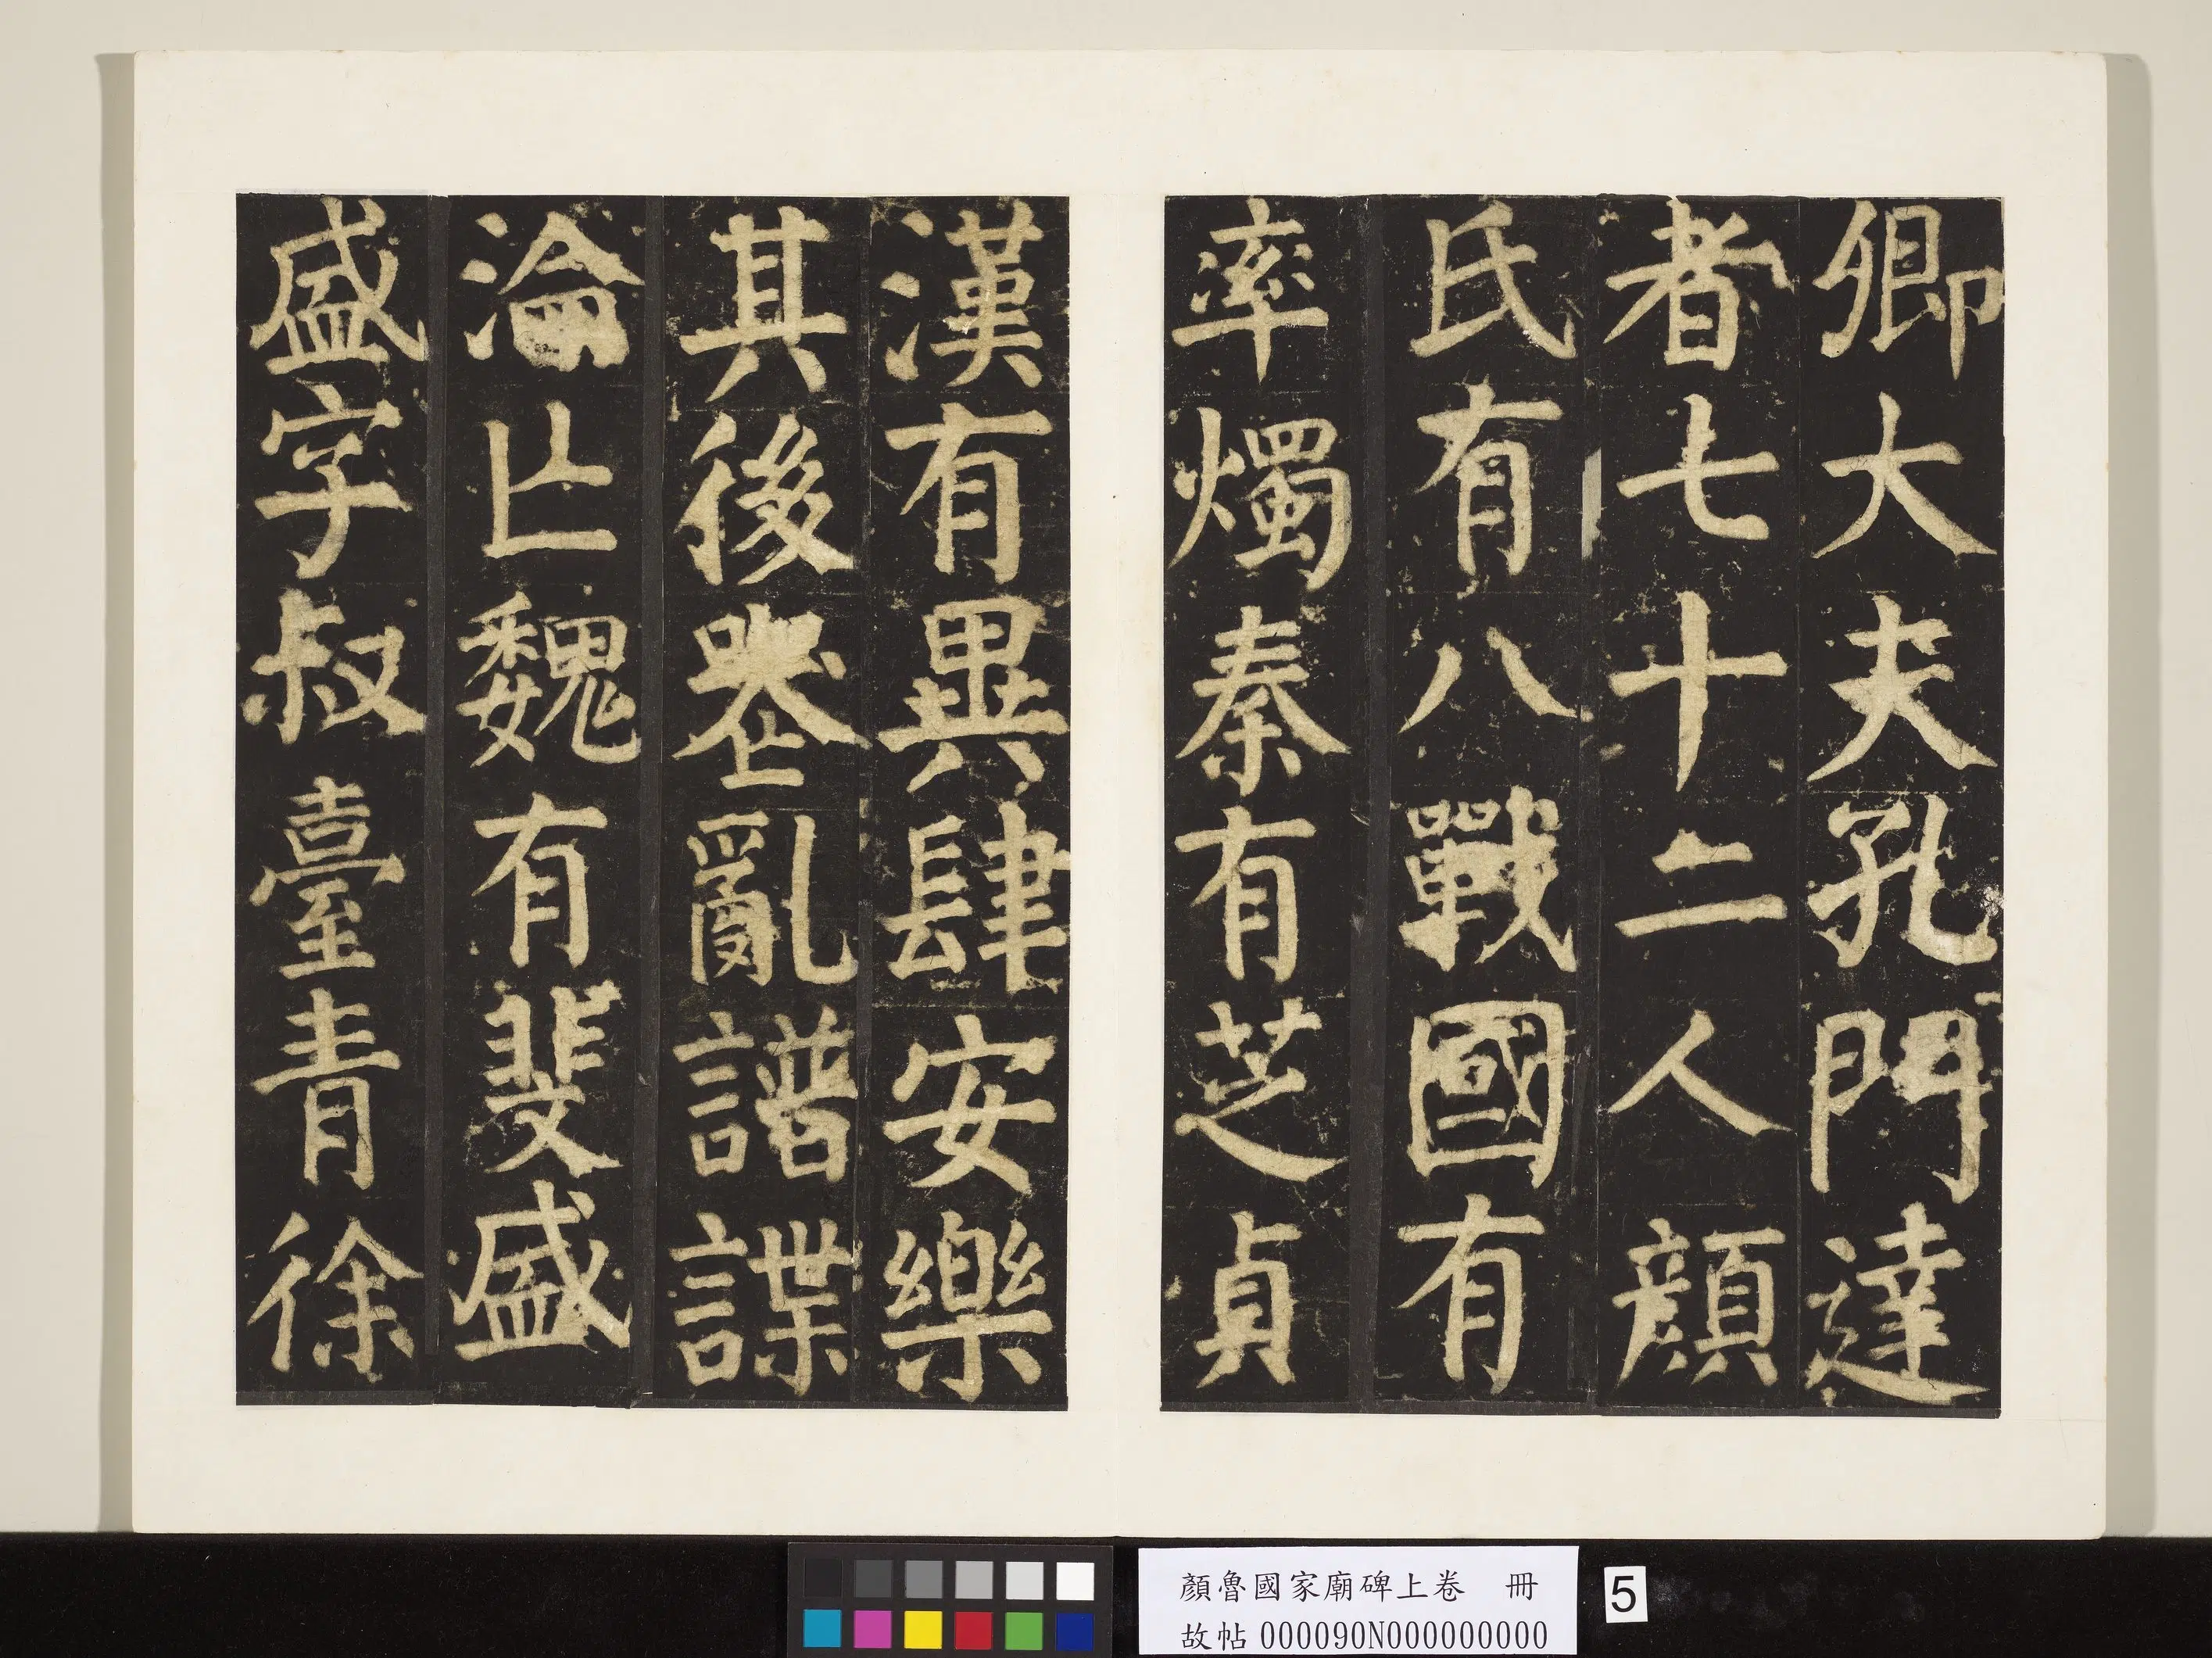 卿大夫孔門達
者七十二人顏
氏有八戰國有
率燭秦有芝貞
漢有異肆安樂
其後喪亂譜諜
淪亡魏有斐盛
盛字叔臺青徐
顏魯國家廟碑上卷 冊
故帖 000090N000000000
5